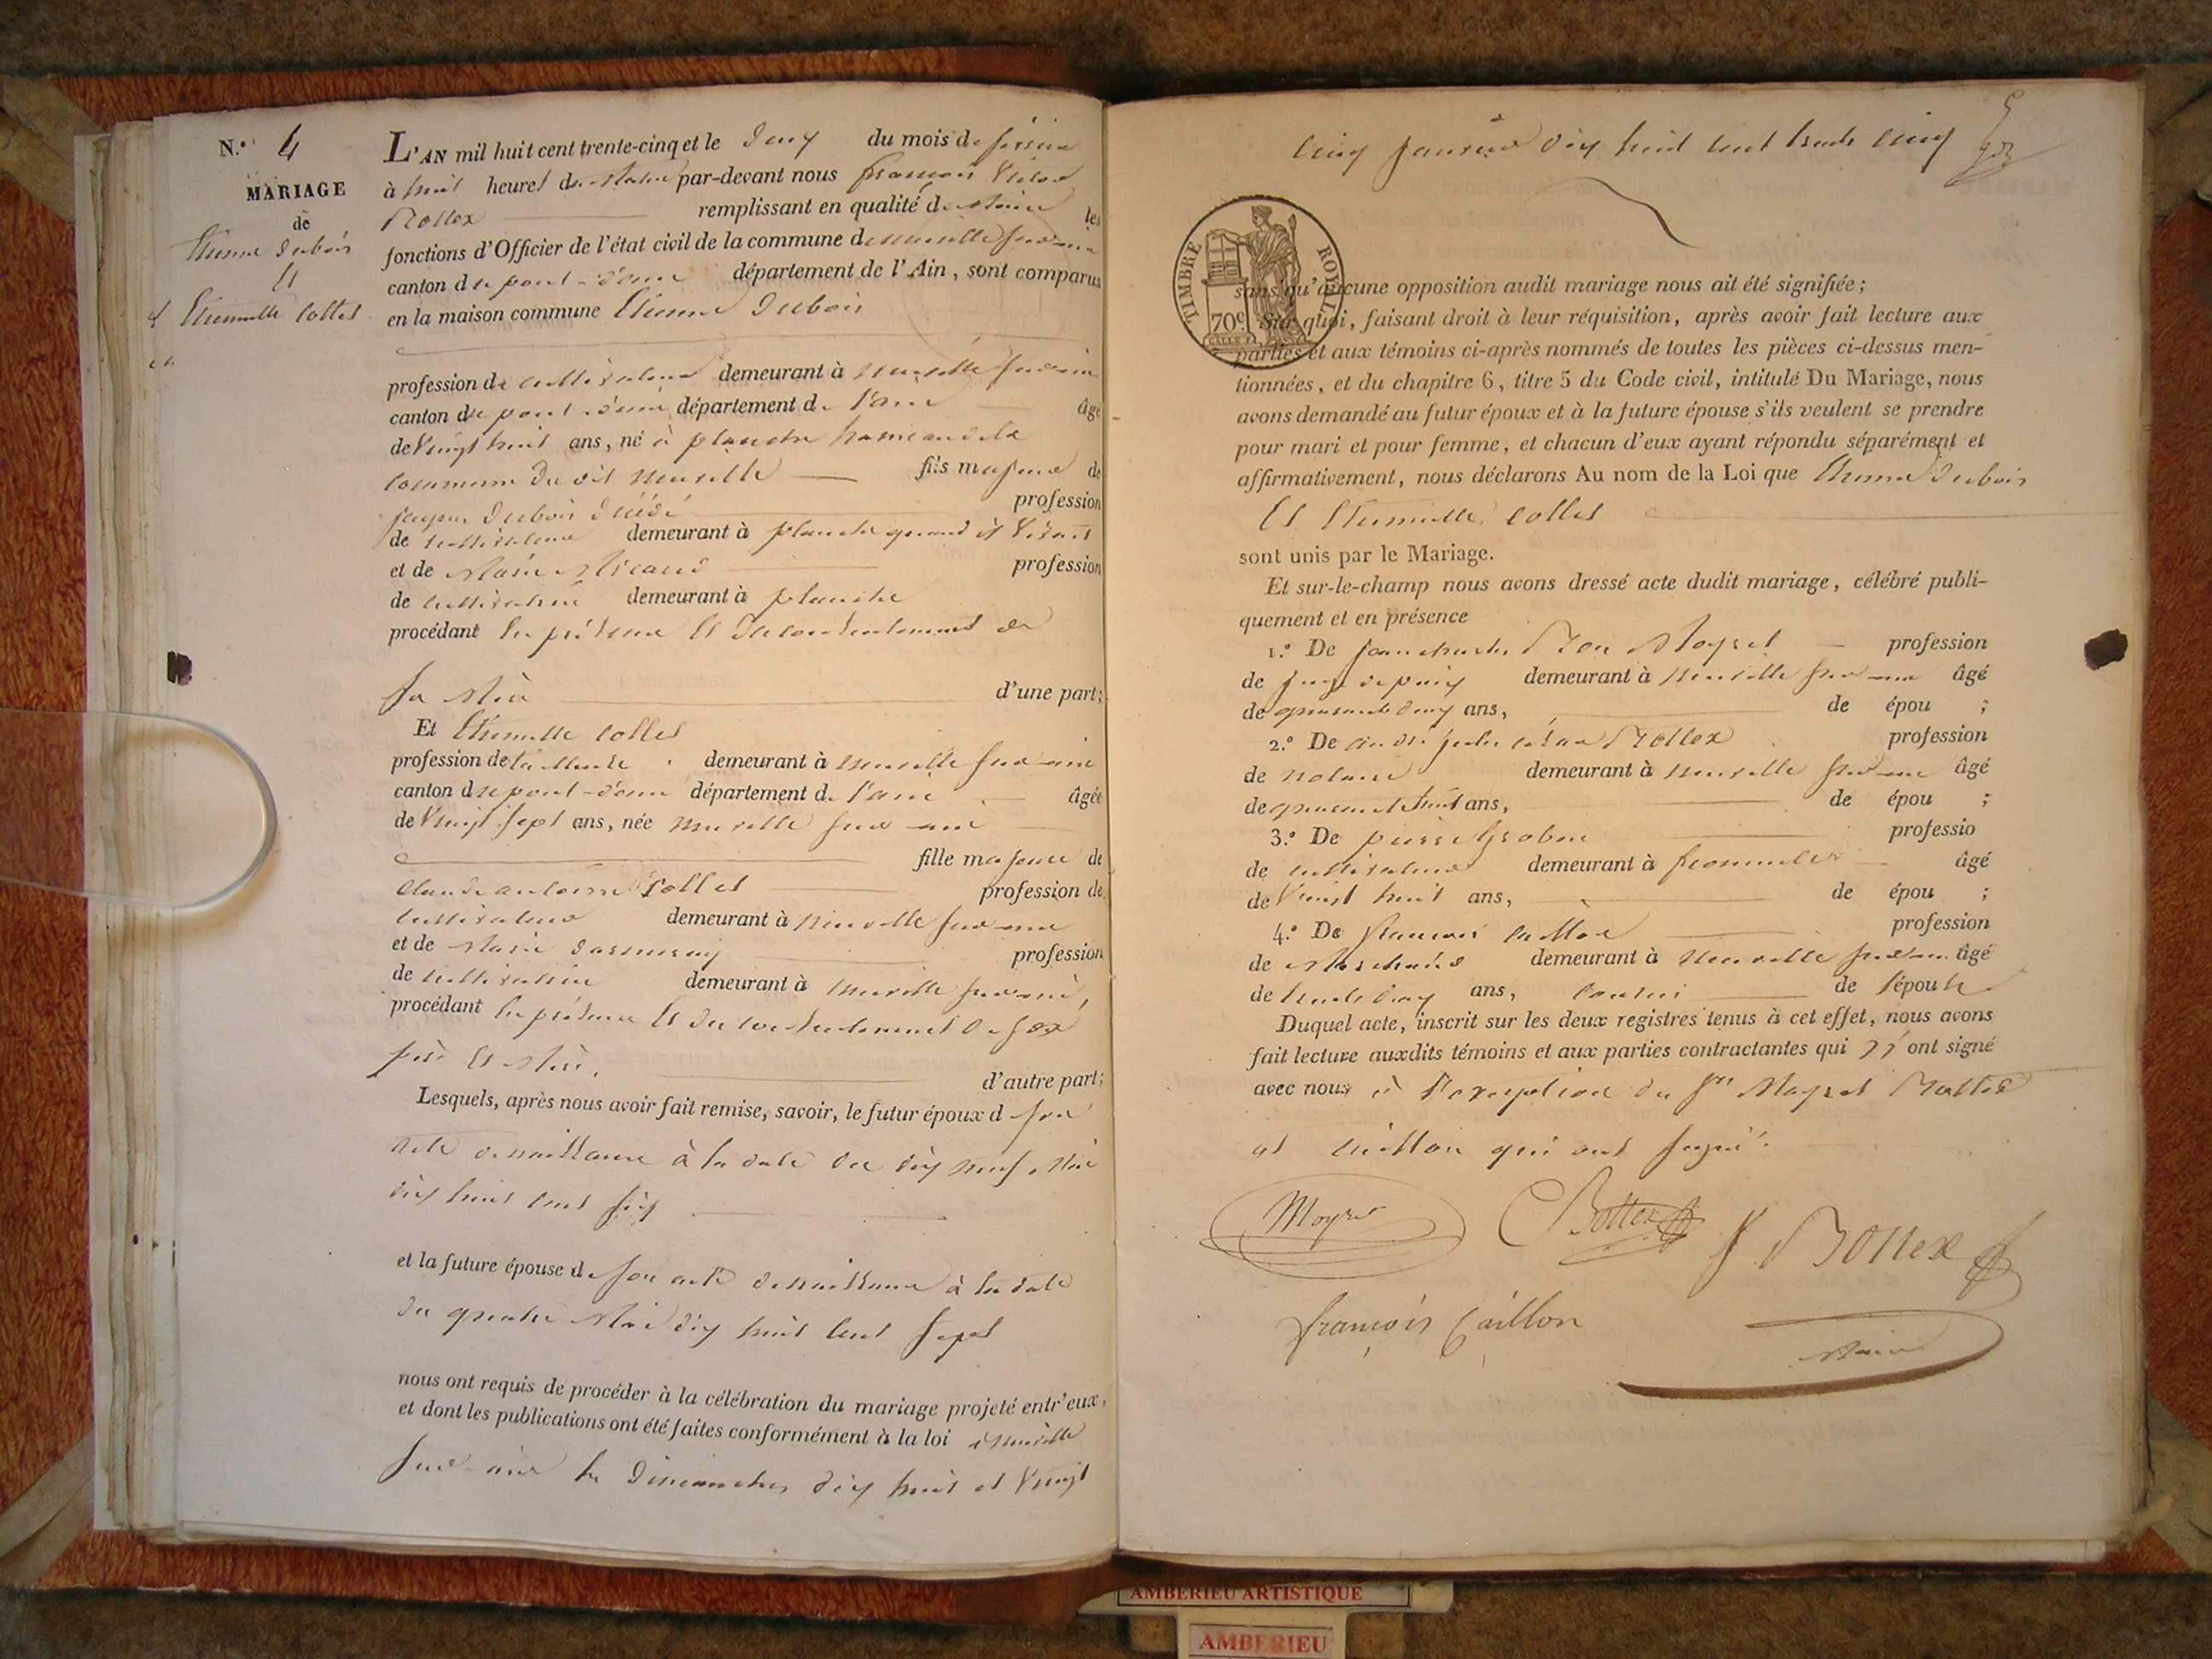 N.º 4
MARIAGE
de
Etienne Dubois
Et
Etiennette Collet
L'AN mil huit cent trente-cinq et le deux du mois de février
à huit heures du matin par-devant nous françois Victor
Bottex remplissant en qualité de Maire les
fonctions d'Officier de l'état civil de la commune de neuville sur ain
canton de pont-d'ain département de l'Ain, sont comparus
en la maison commune Etienne Dubois
profession de cultivateur demeurant à neuville sur ain
canton de pont-d'ain département de l'ain âgé
de Vingt huit ans, né à planche hameau de la
commune du dit neuville fils majeur de
jaques Dubois décédé profession
de cultivateur demeurant à planche quand il vivait
et de Marie Micaud profession
de cultivatrice demeurant à planche
procédant en présence et du consentement de
sa Mère d'une part;
Et Etiennette Collet
profession de tailleuse demeurant à neuville sur ain
canton de pont-d'ain département de l'ain âgée
de Vingt sept ans, née neuville sur ain
fille majeure de
Claude antoine Collet profession de
cultivateur demeurant à neuville sur ain
et de Marie profession
de cultivatrice demeurant à neuville sur ain,
procédant en présence et du consentement de ses
père et Mère, d'autre part;
Lesquels, après nous avoir fait remise, savoir, le futur époux de son
acte de naissance à la date du dix neuf Mai
dix huit cent six
et la future épouse de son acte de naissance à la date
du quatre Mai dix huit cent sept
nous ont requis de procéder à la célébration du mariage projeté entr'eux,
et dont les publications ont été faites conformément à la loi à neuville
sur ain les dimanches dix huit et Vingt
cinq janvier dix huit cent trente cinq
TIMBRE ROYAL
70c
sans qu'aucune opposition audit mariage nous ait été signifiée;
Sur quoi, faisant droit à leur réquisition, après avoir fait lecture aux
parties et aux témoins ci-après nommés de toutes les pièces ci-dessus men-
tionnées, et du chapitre 6, titre 5 du Code civil, intitulé Du Mariage, nous
avons demandé au futur époux et à la future épouse s'ils veulent se prendre
pour mari et pour femme, et chacun d'eux ayant répondu séparément et
affirmativement, nous déclarons Au nom de la Loi que Etienne Dubois
Et Etiennette Collet
sont unis par le Mariage.
Et sur-le-champ nous avons dressé acte dudit mariage, célébré publi-
quement et en présence
1.º De jean Moyret profession
de juge de paix demeurant à neuville sur ain âgé
de quarante deux ans, de épou ;
2.º De andré jules césar Bottex profession
de notaire demeurant à neuville sur ain âgé
de quarante huit ans, de épou ;
3.º De pierre profession
de cultivateur demeurant à âgé
de Vingt huit ans, de épou ;
4.º De françois Caillon profession
de Maréchal demeurant à neuville sur ain âgé
de trente deux ans, cousin de l'épouse
Duquel acte, inscrit sur les deux registres tenus à cet effet, nous avons
fait lecture auxdits témoins et aux parties contractantes qui n'ont signé
avec nous à l'exception du Srs Moyret Bottex
et Caillon qui ont signé.
Moyret
Bottex
Bottex
françois Caillon
Maire
AMBERIEU ARTISTIQUE
AMBERIEU